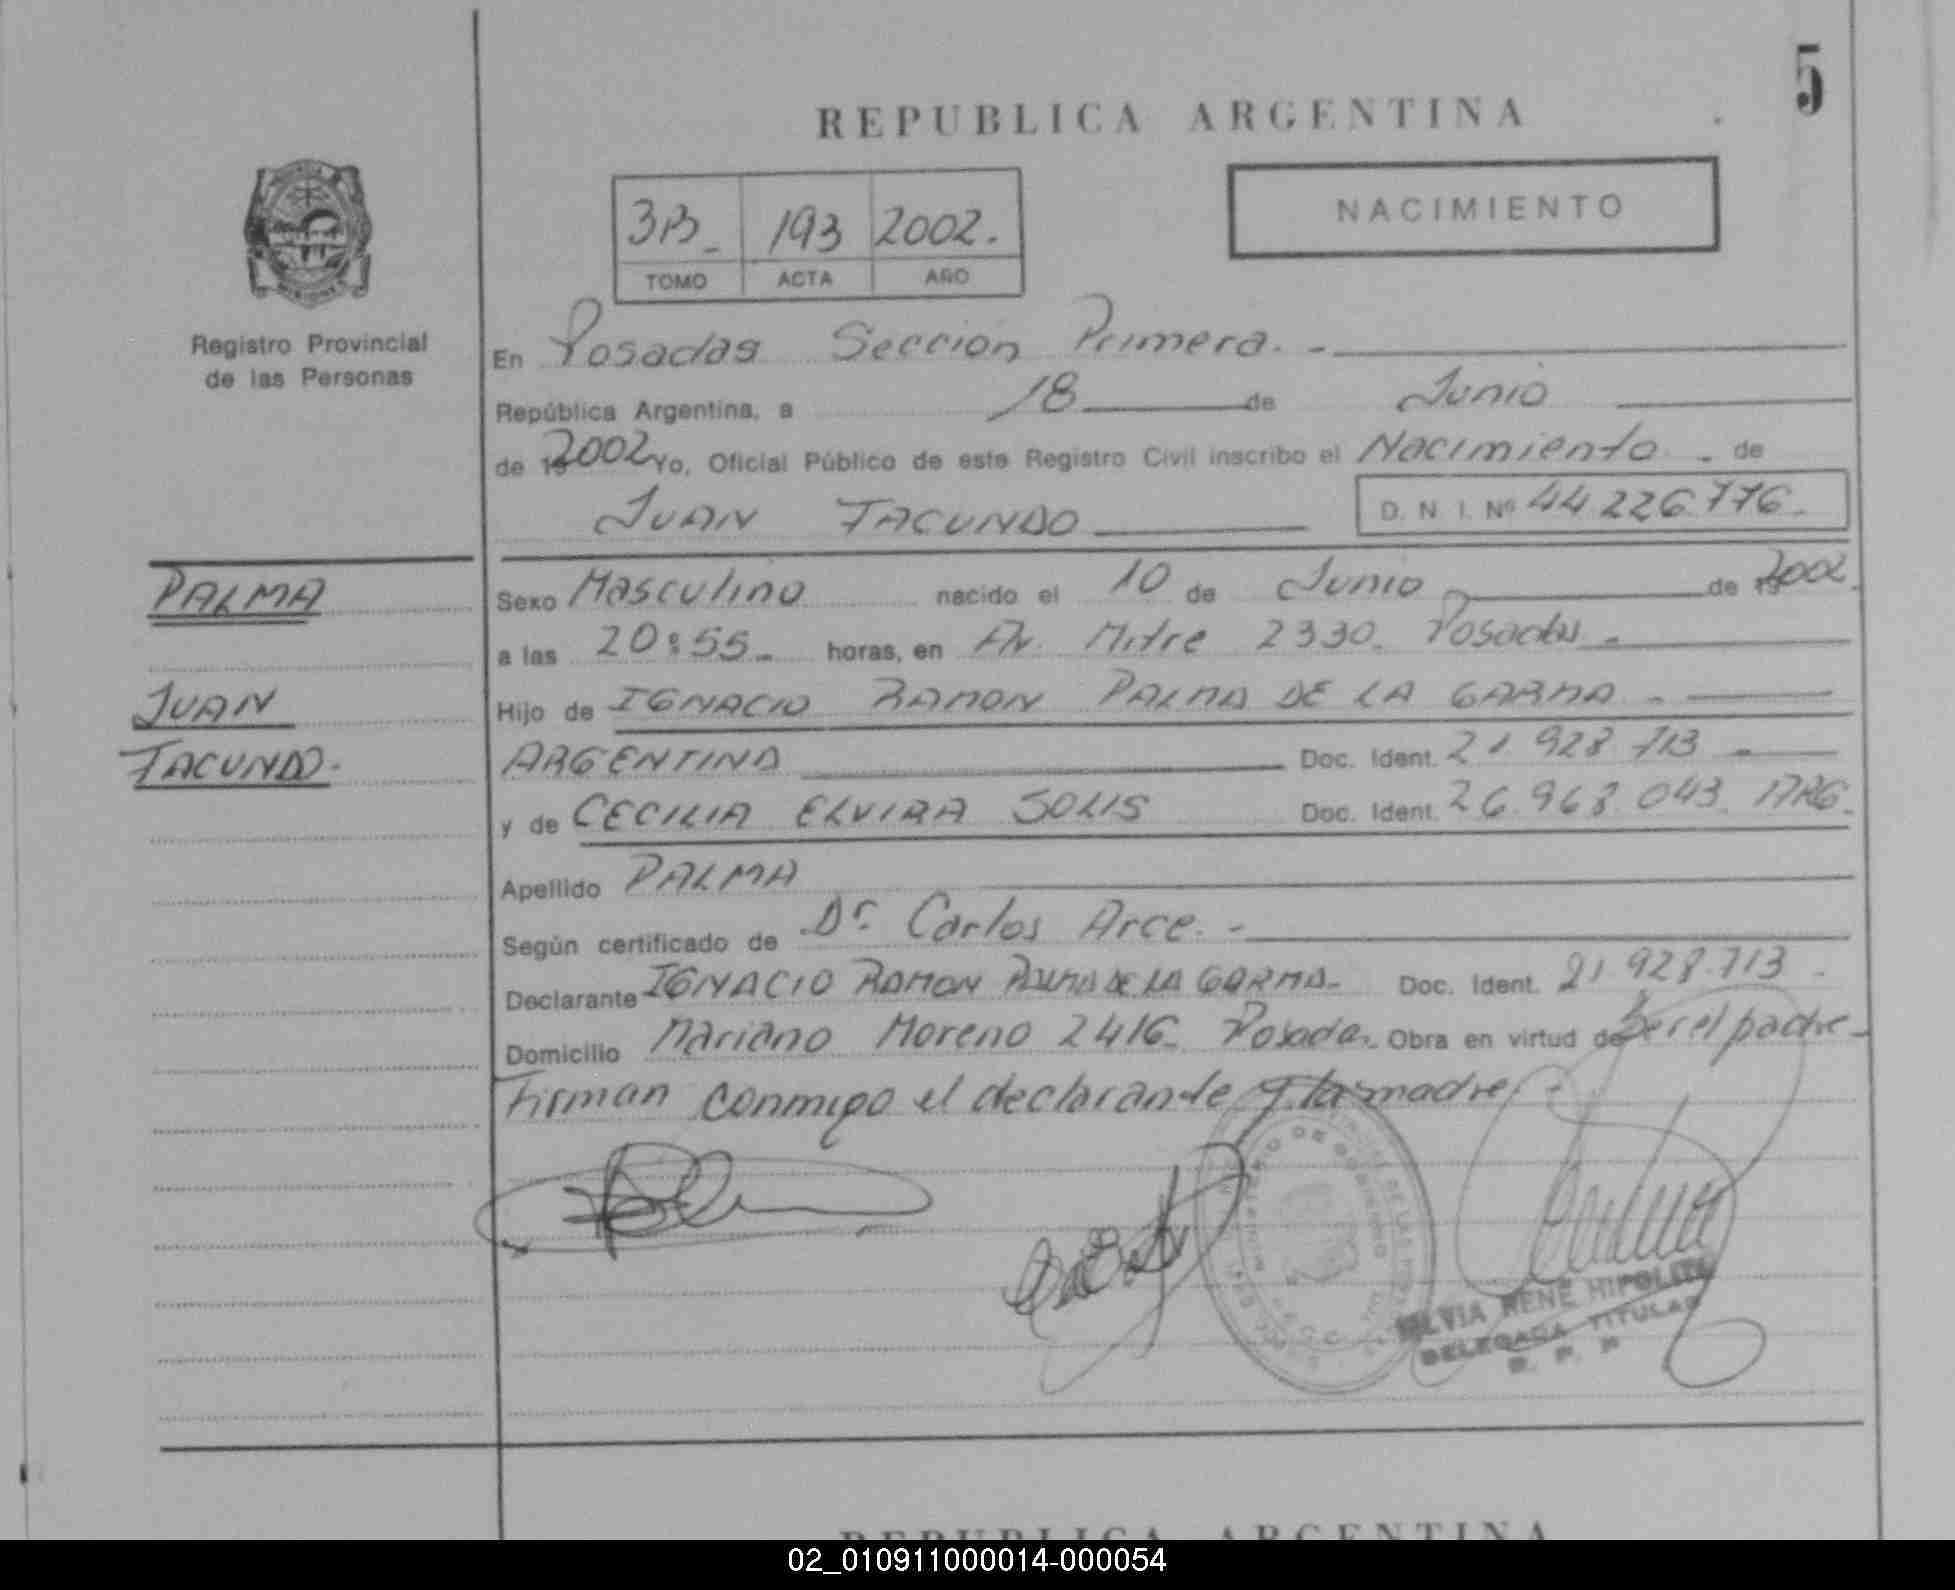 5
REPUBLICA ARGENTINA
3B_ 193 2002.
TOMO ACTA AÑO
NACIMIENTO
Registro Provincial
de las Personas
En Posadas Sección Primera. -
República Argentina, a 18 de Junio
de 19 2002 Yo, Oficial Público de este Registro Civil inscribo el Nacimiento - de
JUAN FACUNDO D. N. I. Nº 44.226.776.
PALMA
JUAN
FACUNDO.
Sexo Masculino nacido el 10 de Junio de 19 2002.
a las 20:55 horas, en Av. Mitre 2330. Posadas -
Hijo de IGNACIO RAMON PALMA DE LA GARMA -
ARGENTINA Doc. Ident. 21.928.713 -
y de CECILIA ELVIRA SOLIS Doc. Ident. 26.968.043. ARG.
Apellido PALMA
Según certificado de Dr. Carlos Arce. -
Declarante IGNACIO RAMON PALMA DE LA GARMA- Doc. Ident. 21.928.713.
Domicilio Mariano Moreno 2416 Posadas. Obra en virtud de Ser el padre-
Firman conmigo el declarante y la madre. -
SILVIA RENE HIPOLITO
DELEGADA TITULAR
R. P. P
REPUBLICA ARGENTINA
02_010911000014-000054